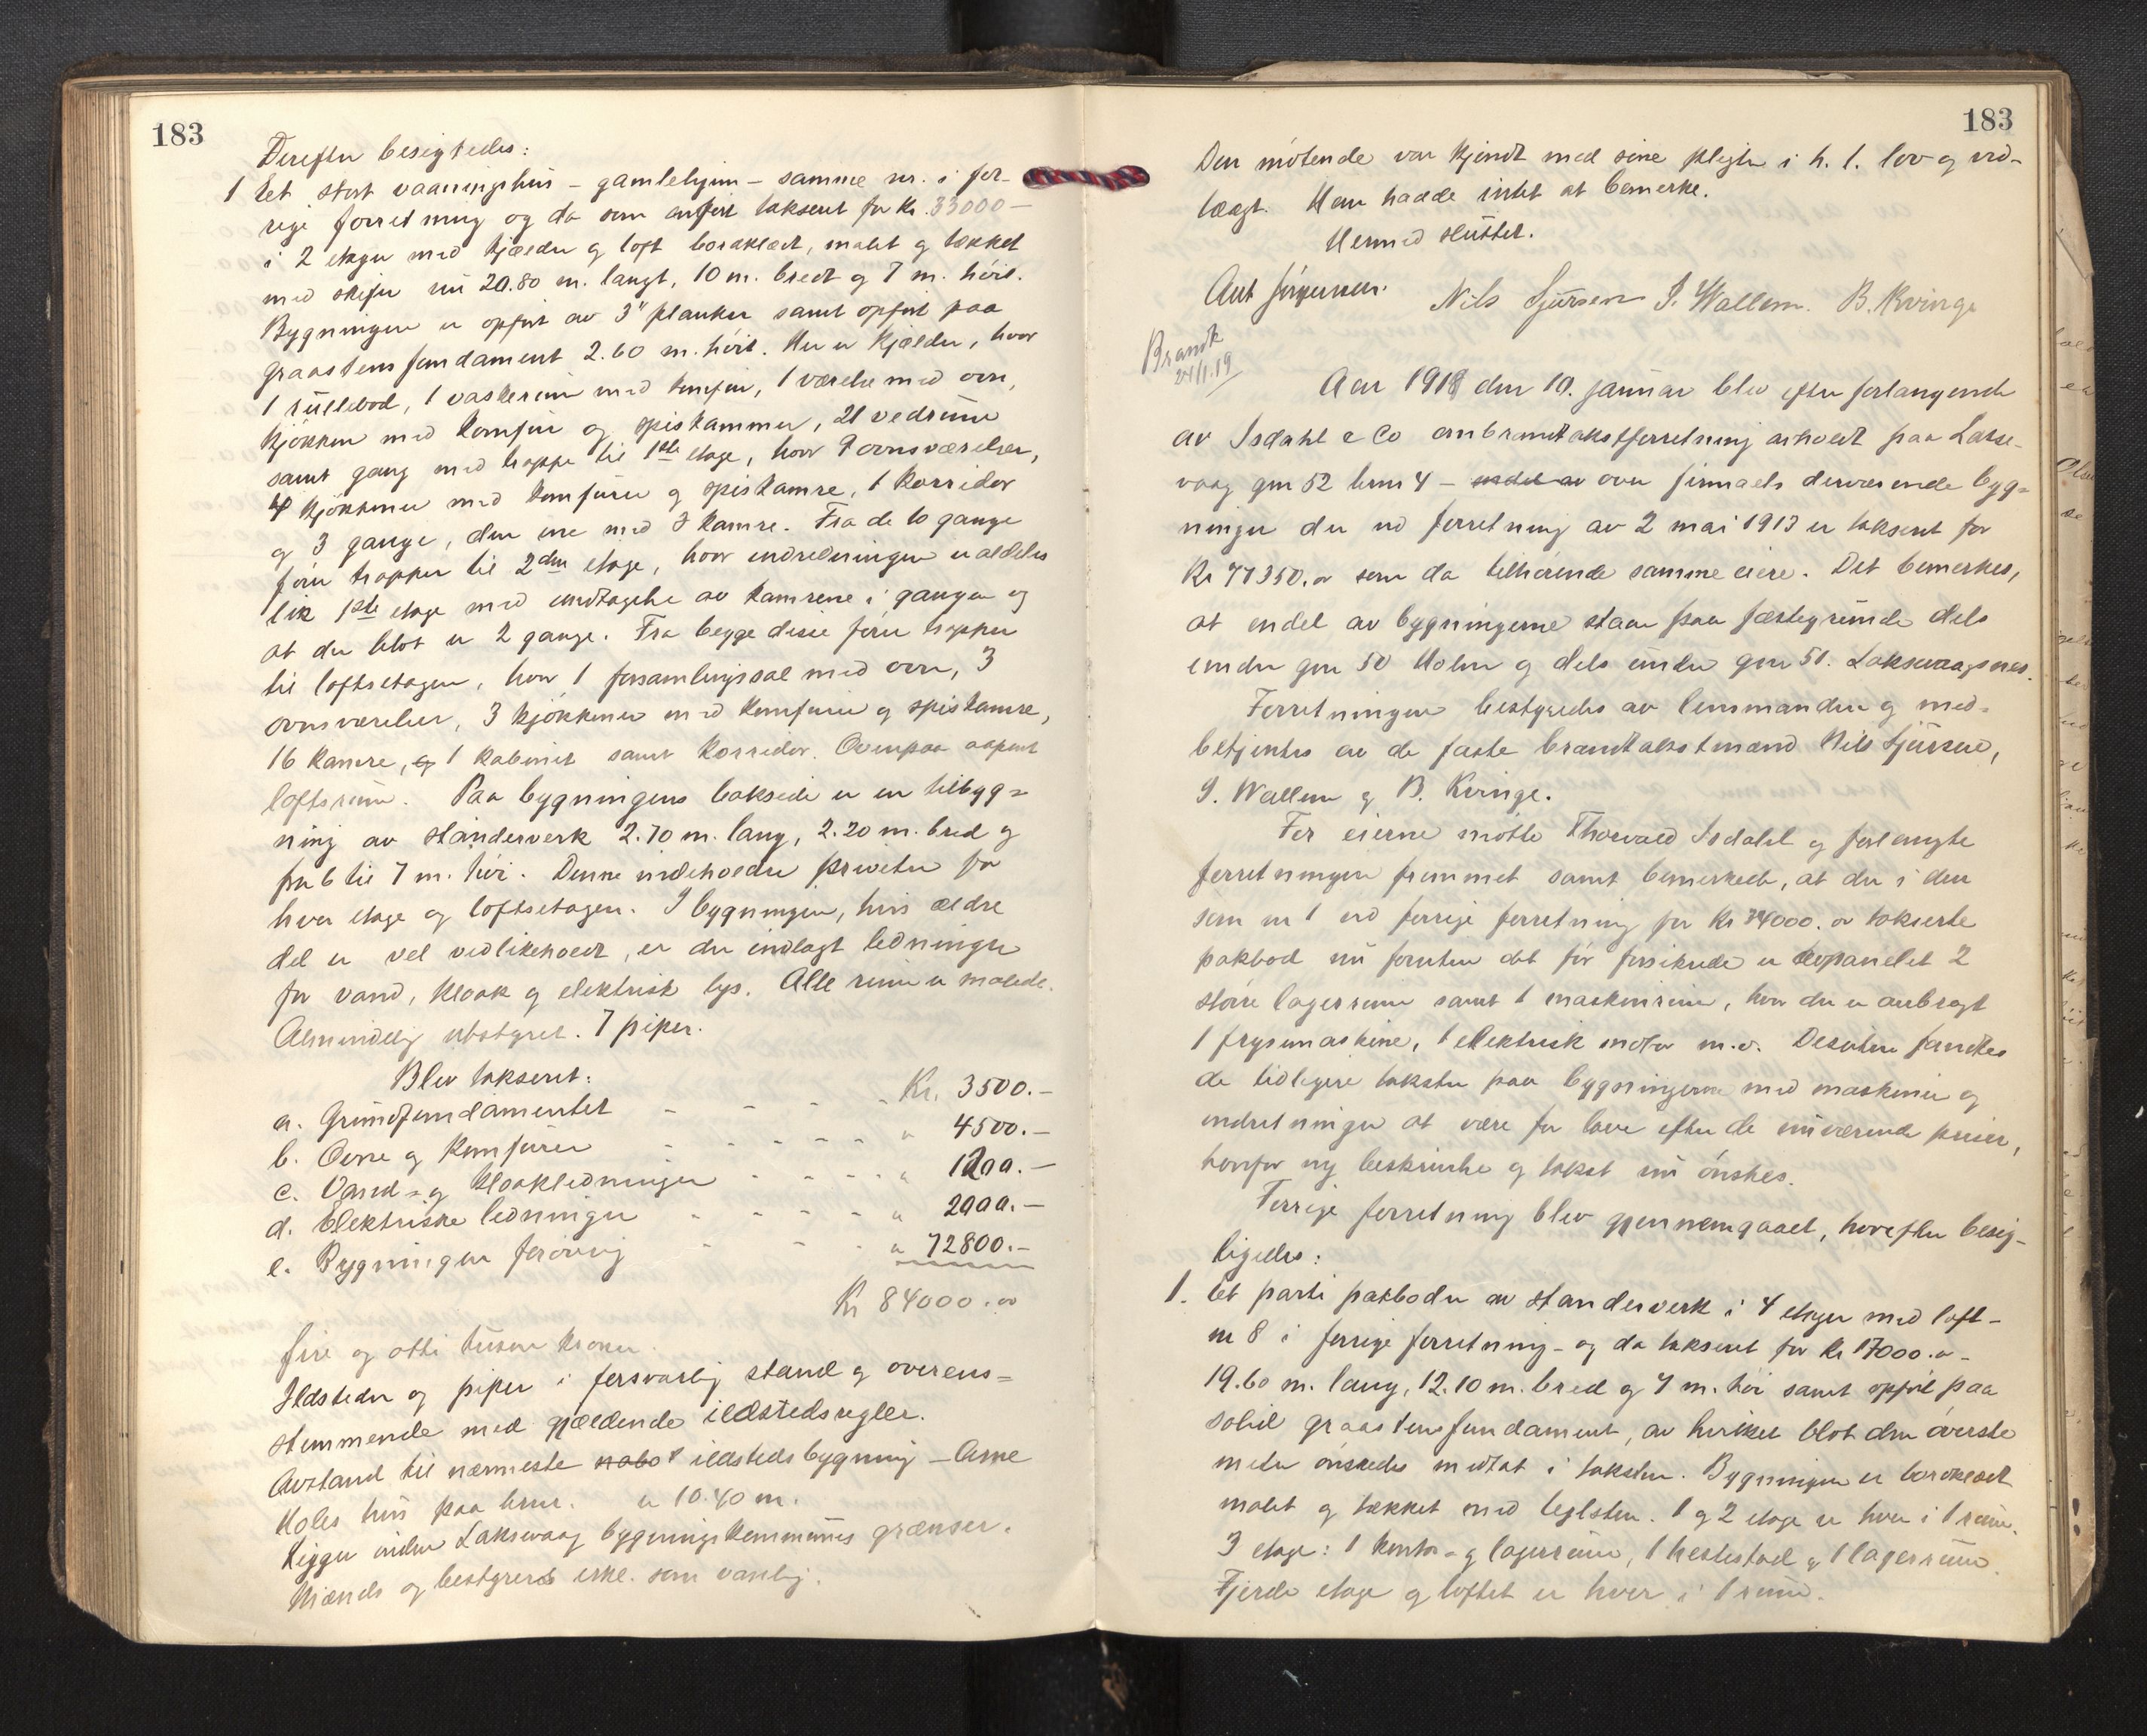 183
Derefter besigtedes:
1 Eet stort vaaningshus - gamlehjem - samme nr. i for-
rige forretning og da som anført takseret for Kr. 33000 -
i 2 etager med kjælder og loft bordklædt, malet og tækket
med skifer nu 20.80 m. langt, 10 m. bredt og 7 m. høit.
Bygningen er opført av 3" planker samt opført paa
graastensfundament 2.60 m. høit. Her er kjælder, hvor
1 rullebod, 1 vaskerum med komfur, 1 værelse med ovn,
kjøkken med komfur og spiskammer, 21 vedrum
samt gang med trappe til 1ste etage, hvor 9 ovnsværelser,
4 kjøkkener med komfurer og spiskamre, 1 korridor
og 3 gange, den ene med 2 kamre. Fra de to gange
fører trapper til 2den etage, hvor indredningen er aldeles
lik 1ste etage med undtagelse av kamrene i gangen og
at der blot er 2 gange. Fra begge disse fører trapper
til loftsetagen, hvor 1 forsamlingssal med ovn, 3
ovnsværelser, 3 kjøkkener med komfurer og spiskamre,
16 kamre, og 1 kabinet samt korridor. Ovenpaa aapent
loftsrum. Paa bygningens bakside er en tilbyg=
ning av standerverk 2.70 m. lang, 2.20 m. bred og
fra 6 til 7 m. høi. Denne indeholder priveter for
hver etage og loftsetagen. I bygningen, hvis ældre
del er vel vedlikeholdt, er der indlagt ledninger
for vand, kloak og elektrisk lys. Alle rum er malede.
Almindelig utstyret. 7 piper.
Blev takseret:
a. Grundfundamentet - - - - Kr. 3500.-
b. Ovne og komfurer - - - - - " 4500.-
c. Vand- og kloakledninger - - - - " 1200.-
d. Elektriske ledninger - - - - - " 2000.-
e. Bygningen forøvrig - - - " 72800.-
Kr 84000.oo
fire og otti tusen kroner.
Ildsteder og piper i forsvarlig stand og overens=
stemmende med gjældende ildstedsregler.
Avstand til nærmeste nabo ildstedsbygning - Arne
Holes hus paa brnr. er 10.40 m.
Ligger inden Laksevaag bygningskommunes grænser.
Mænds og bestyreres erkl. som vanlig.
183
Den møtende var kjendt med sine pligter i h. t. lov og ved-
tægt. Han hadde intet at bemerke.
Hermed sluttet.
Ant Jørgensen. Nils Sjursen I. Wallem. B. Kvinge
Brandt
24/1.19
Aar 1918 den 10. januar blev efter forlangende
av Isdahl & Co ombrandtakstforretning avholdt paa Lakse-
vaag gnr 52 brnr 4 - endel av over firmaets derværende byg=
ninger der ved forretning av 2 mai 1913 er takseret for
Kr 77350.oo som da tilhørende samme eiere. Det bemerkes,
at endel av bygningerne staar paa fæstegrunde dels
under gnr 50 Holen og dels under gnr 51. Laksevaagsnes.
Forretningen bestyredes av lensmanden og med=
betjentes av de faste brandtakstmænd Nils Sjursen,
I. Wallem og B. Kvinge.
For eierne møtte Thorvald Isdahl og forlangte
forretningen fremmet samt bemerkede, at der i den
som nr 1 ved forrige forretning for Kr 34000.oo takserte
pakbod nu foruten det før forsikrede er avpanelet 2
større lagerrum samt 1 maskinrum, hvor der er anbragt
1 frysemaskine, 1 elektrisk motor m.v. Desuten fandtes
de tidligere takster paa bygningerne med maskiner og
indretninger at være for lave efter de nuværende priser,
hvorfor ny beskrivelse og takst nu ønskes.
Forrige forretning blev gjennemgaaet, hvorefter besig-
tigedes:
1. Et parti pakboder av standerverk i 4 etager med loft -
nr 8 i forrige forretning - og da takseret for Kr 17000.oo -
19.60 m. lang, 12.10 m. bred og 7 m. høi samt opført paa
solid graastensfundament, av hvilket blot den øverste
meter ønskedes medtat i taksten. Bygningen er bordklædt
malet og tækket med teglsten. 1 og 2 etage er hver i 1 rum.
3 etage: 1 kontor- og lagerrum, 1 hestestald og 1 lagerrum.
Fjerde etage og loftet er hver i 1 rum.